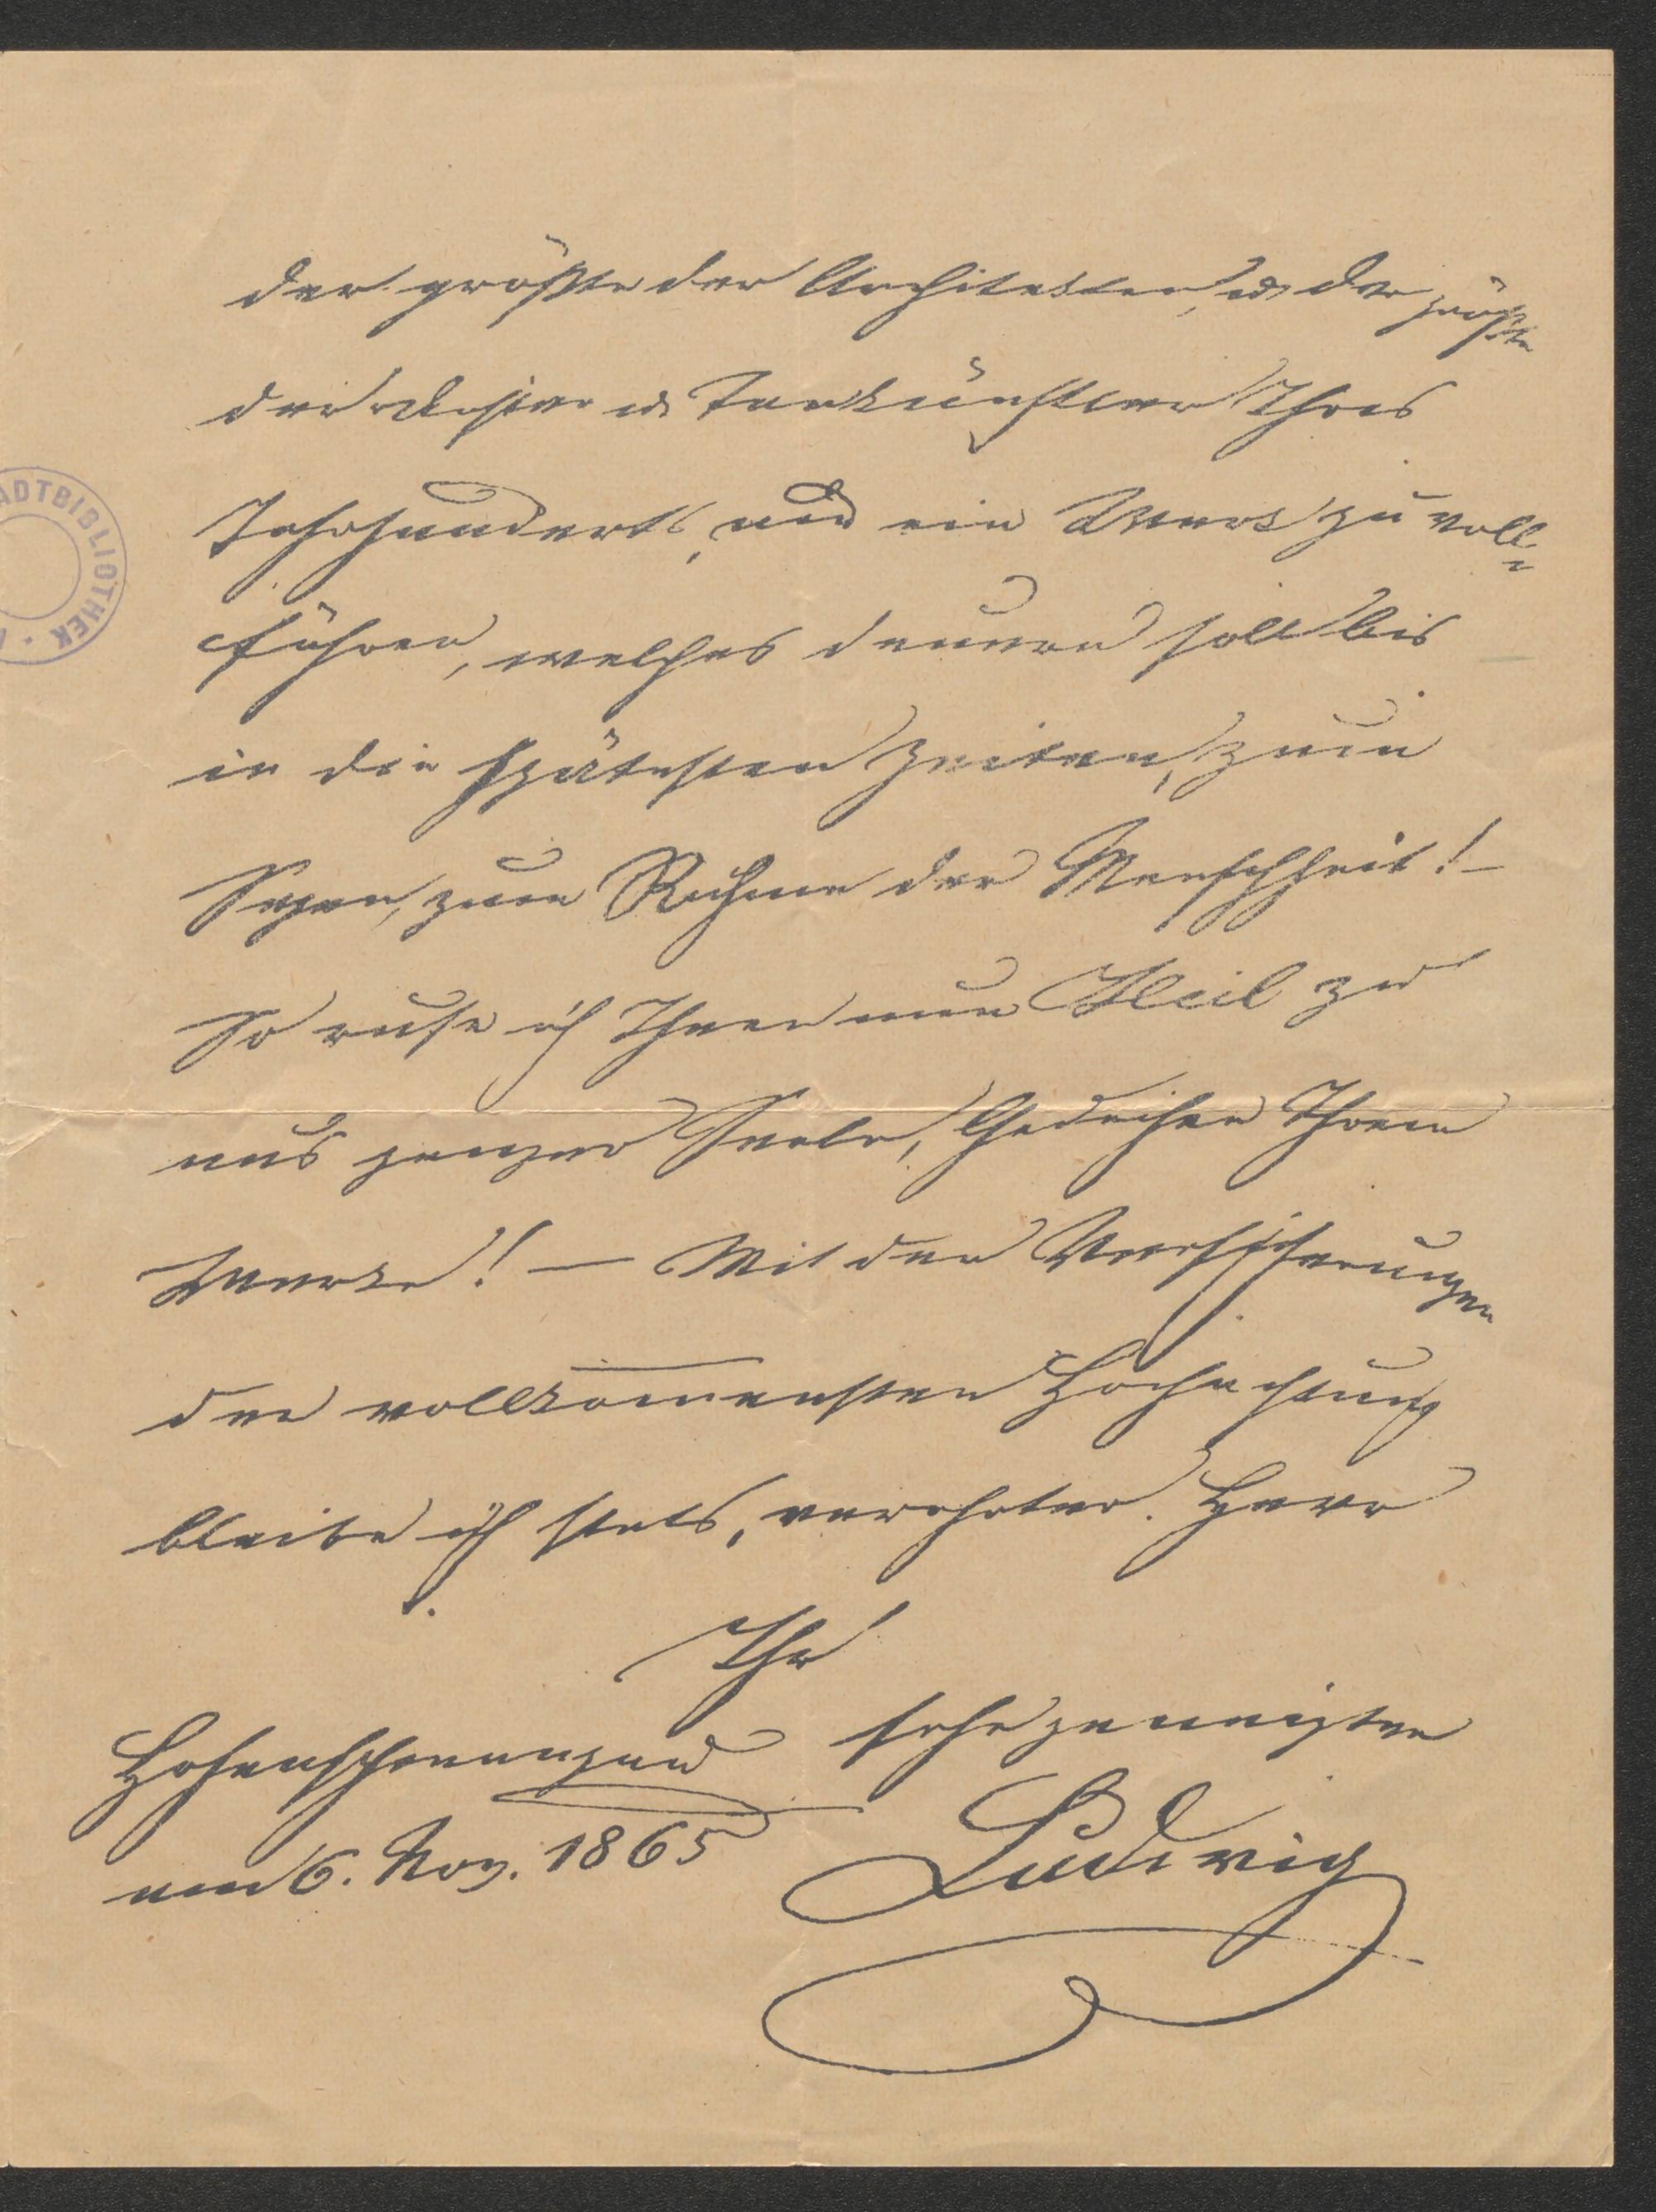 der größte der Architekten, u. der größte
der Dichter u. Tonkünstler Ihres
Jahrhunderts, und ein Werk zu voll=
führen, welches dauern soll bis
in die spätesten Zeiten, zum
Segen, zum Ruhme der Menschheit! –
So rufe ich Ihnen nun Heil zu
aus ganzer Seele, Gedeihen Ihrem
Werke! — Mit den Versicherungen
der vollkom̅ensten Hochachtung
bleibe ich stets, verehrter Herr
Ihr
sehr geneigter
Hohenschwangau
am 6. Nov. 1865
Ludwig
ADTBIBLIOTHEK